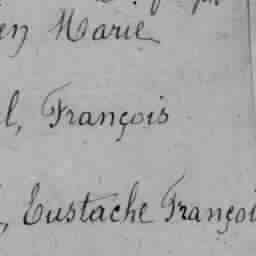 en Marie
l, François
, Eustache Françoi